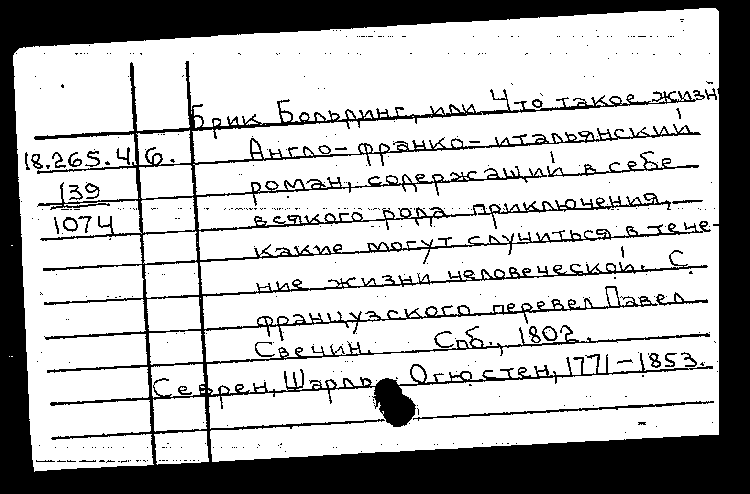 Брик Больдинг, или Что такое жизн
18.265.4.6. Англо-франко-итальянский
139 роман, содержащий в себе
1074 всякого рода приключения,
какие могут случиться в тече-
ние жизни человеческой. С
французского перевел Павел
Свечин. Спб., 1802.
Севрен, Шарль Огюстен, 1771-1853.